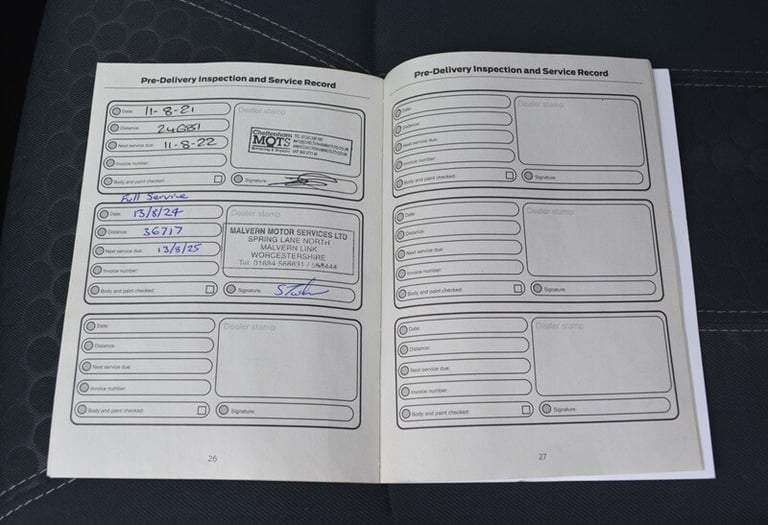 Pre-Delivery Inspection and Service Record
Date: 11-8-21
Distance:
Next service due: 11-8-22
Invoice number:
Body and paint checked:
Dealer stamp
Cheltenham
MOTS
Signature:
Full Service
Date: 13/8/24
Distance: 36717
Next service due: 13/8/25
Invoice number:
Body and paint checked:
Dealer stamp
MALVERN MOTOR SERVICES LTD
SPRING LANE NORTH
MALVERN LINK
WORCESTERSHIRE
Tel: 01684 568831 /
Signature:
Date:
Distance:
Next service due:
Invoice number:
Body and paint checked:
Dealer stamp
Signature:
26
Pre-Delivery Inspection and Service Record
Date:
Distance:
Next service due:
Invoice number:
Body and paint checked:
Dealer stamp
Signature:
Date:
Distance:
Next service due:
Invoice number:
Body and paint checked:
Dealer stamp
Signature:
Date:
Distance:
Next service due:
Invoice number:
Body and paint checked:
Dealer stamp
Signature:
27